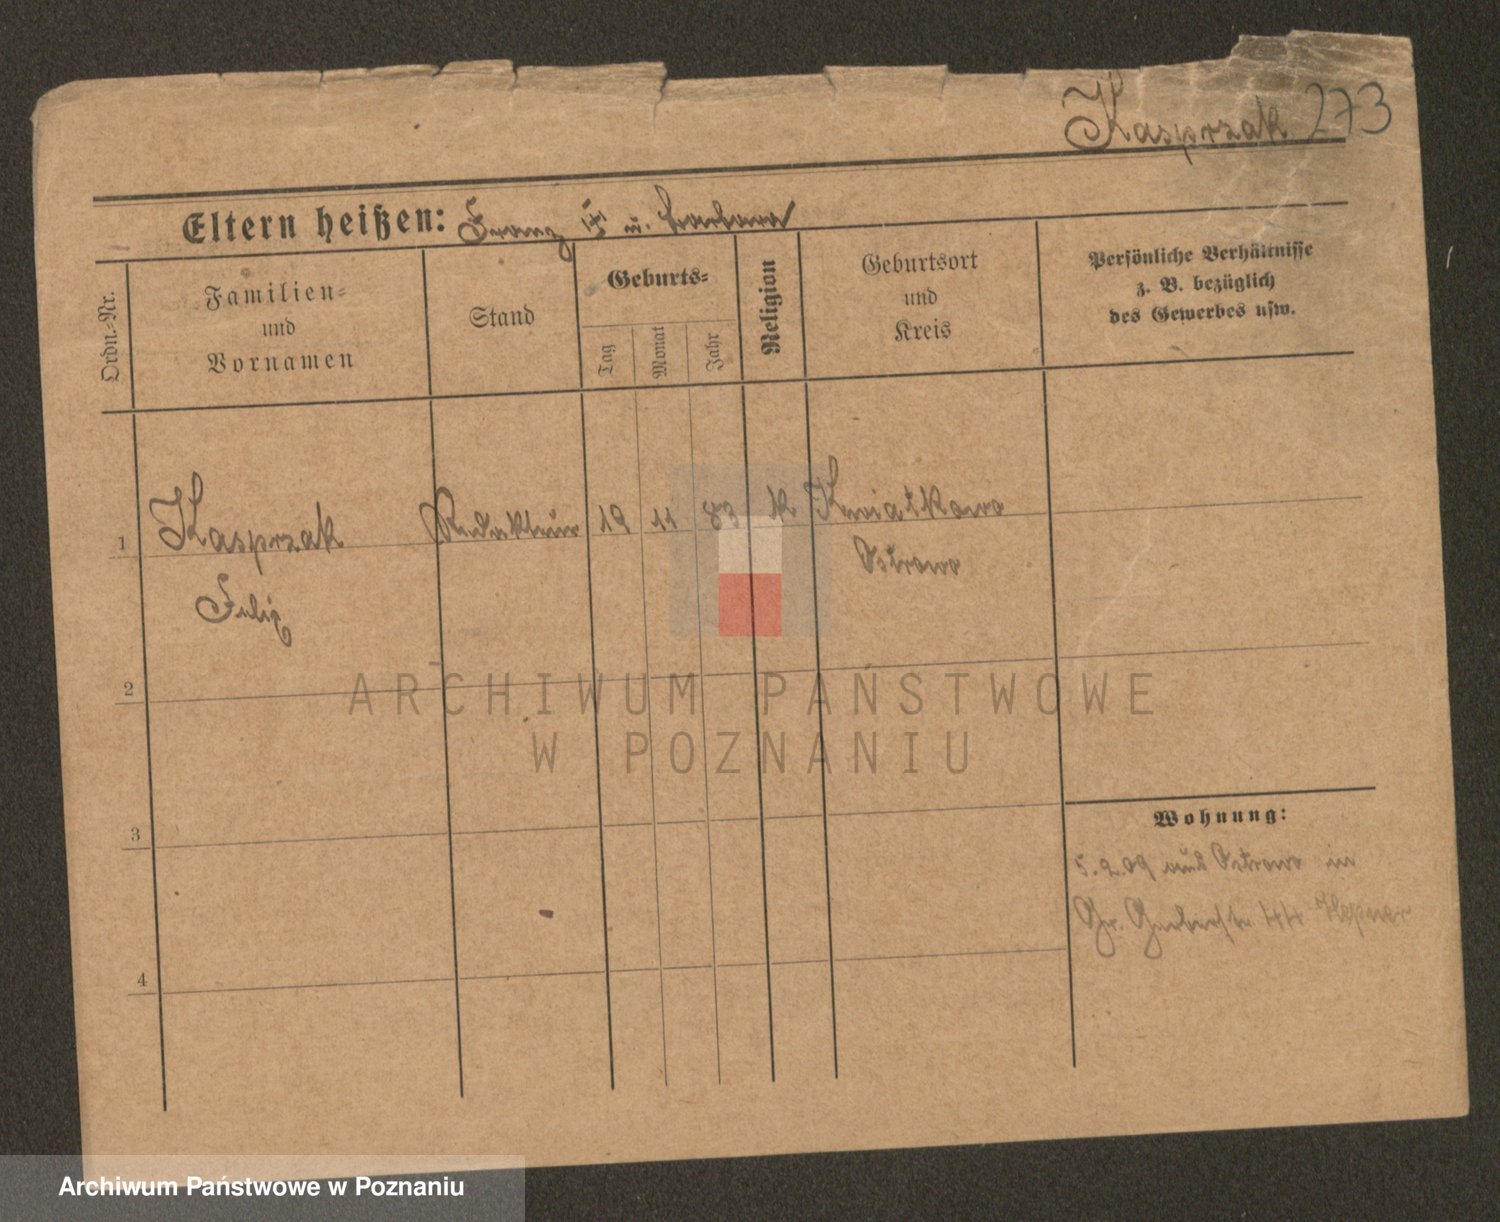 Kasprzak 273
Eltern heißen: Franz u. Barbara
Ordn.-Nr.
Familien-
und
Vornamen
Stand
Geburts-
Tag
Monat
Jahr
Religion
Geburtsort
und
Kreis
Persönliche Verhältnisse
z. B. bezüglich
des Gewerbes usw.
1 Kasprzak Redakteur 19 11 83 k Kwiatkowo
Felix Ostrowo
2
3
4
Wohnung:
5.2.09 aus Ostrowo in
Gr. Gerberstr. 44
ARCHIWUM PAŃSTWOWE
W POZNANIU
Archiwum Państwowe w Poznaniu